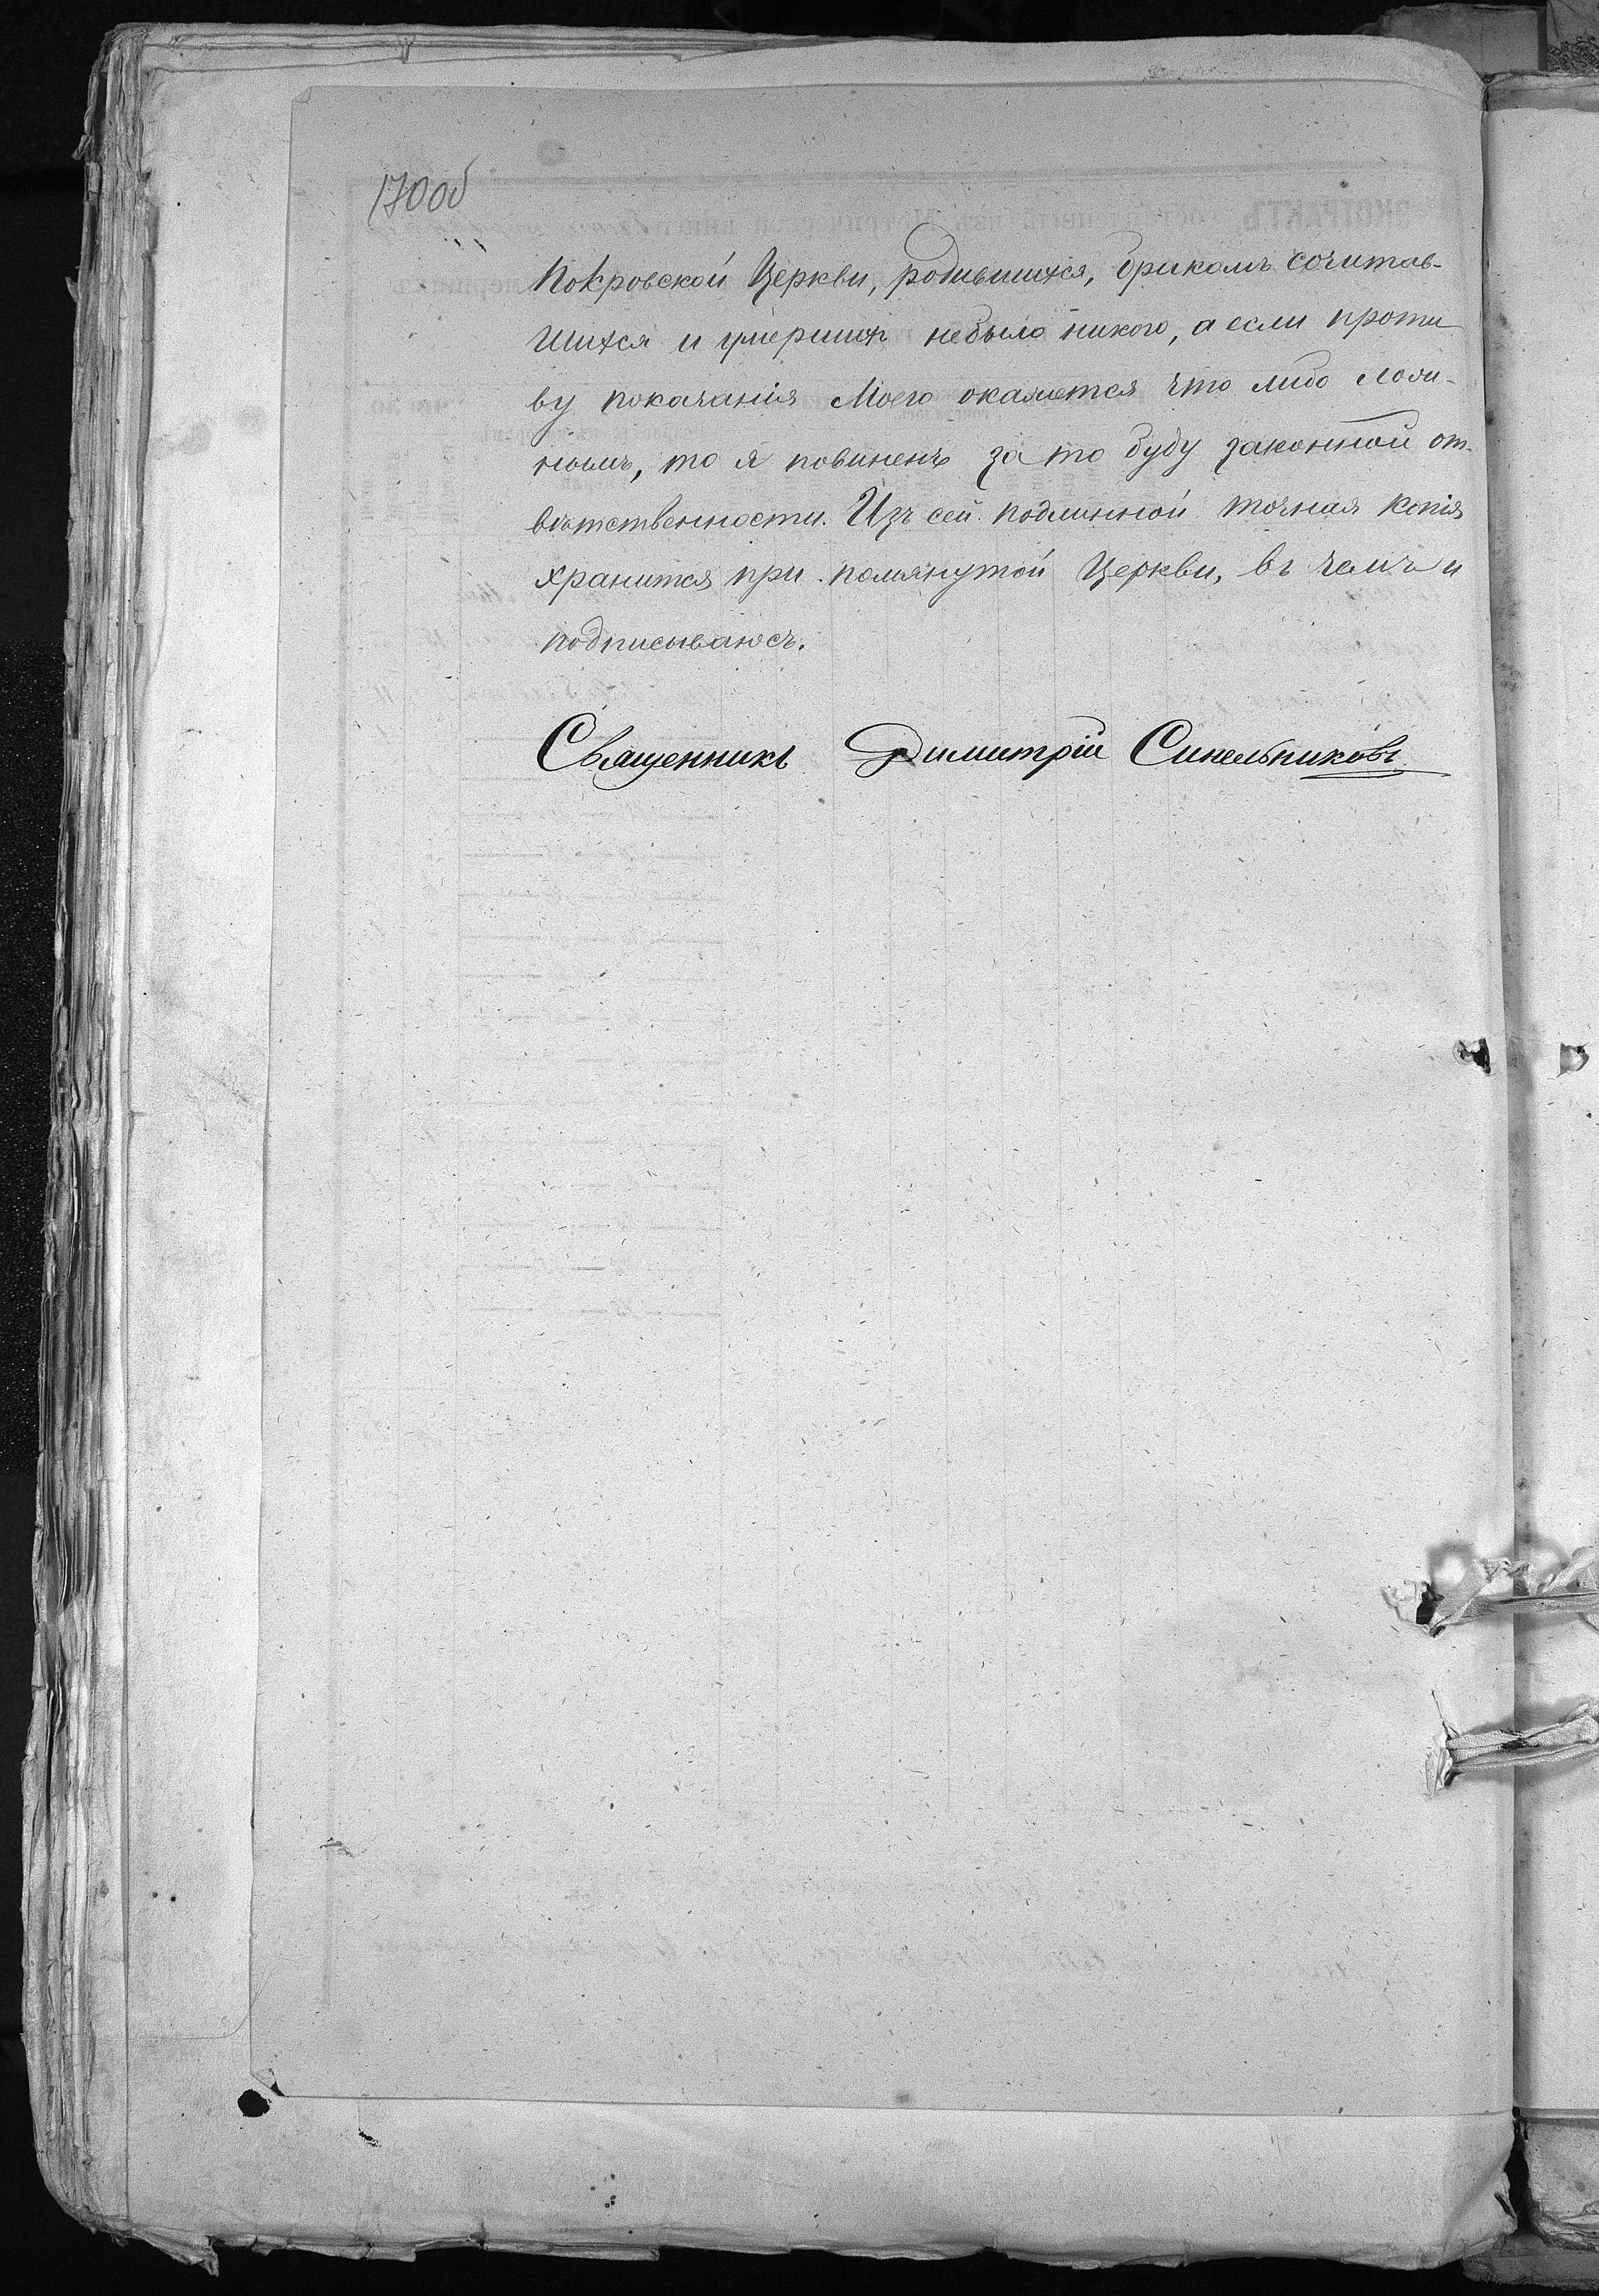 170об
Покровской Церкви, родившихся, бракомъ сочитав-
шихся и умершихъ небыло никого, а если проти
ву показанія Моего окажется что либо ложи-
нымъ, то я повиненъ за то буду законной от-
вѣтственности. Изъ сей подлинной точная копія
хранится при помянутой Церкви, въ чемъ и
подписываюсь.
Священникъ Димитрій Синельниковъ